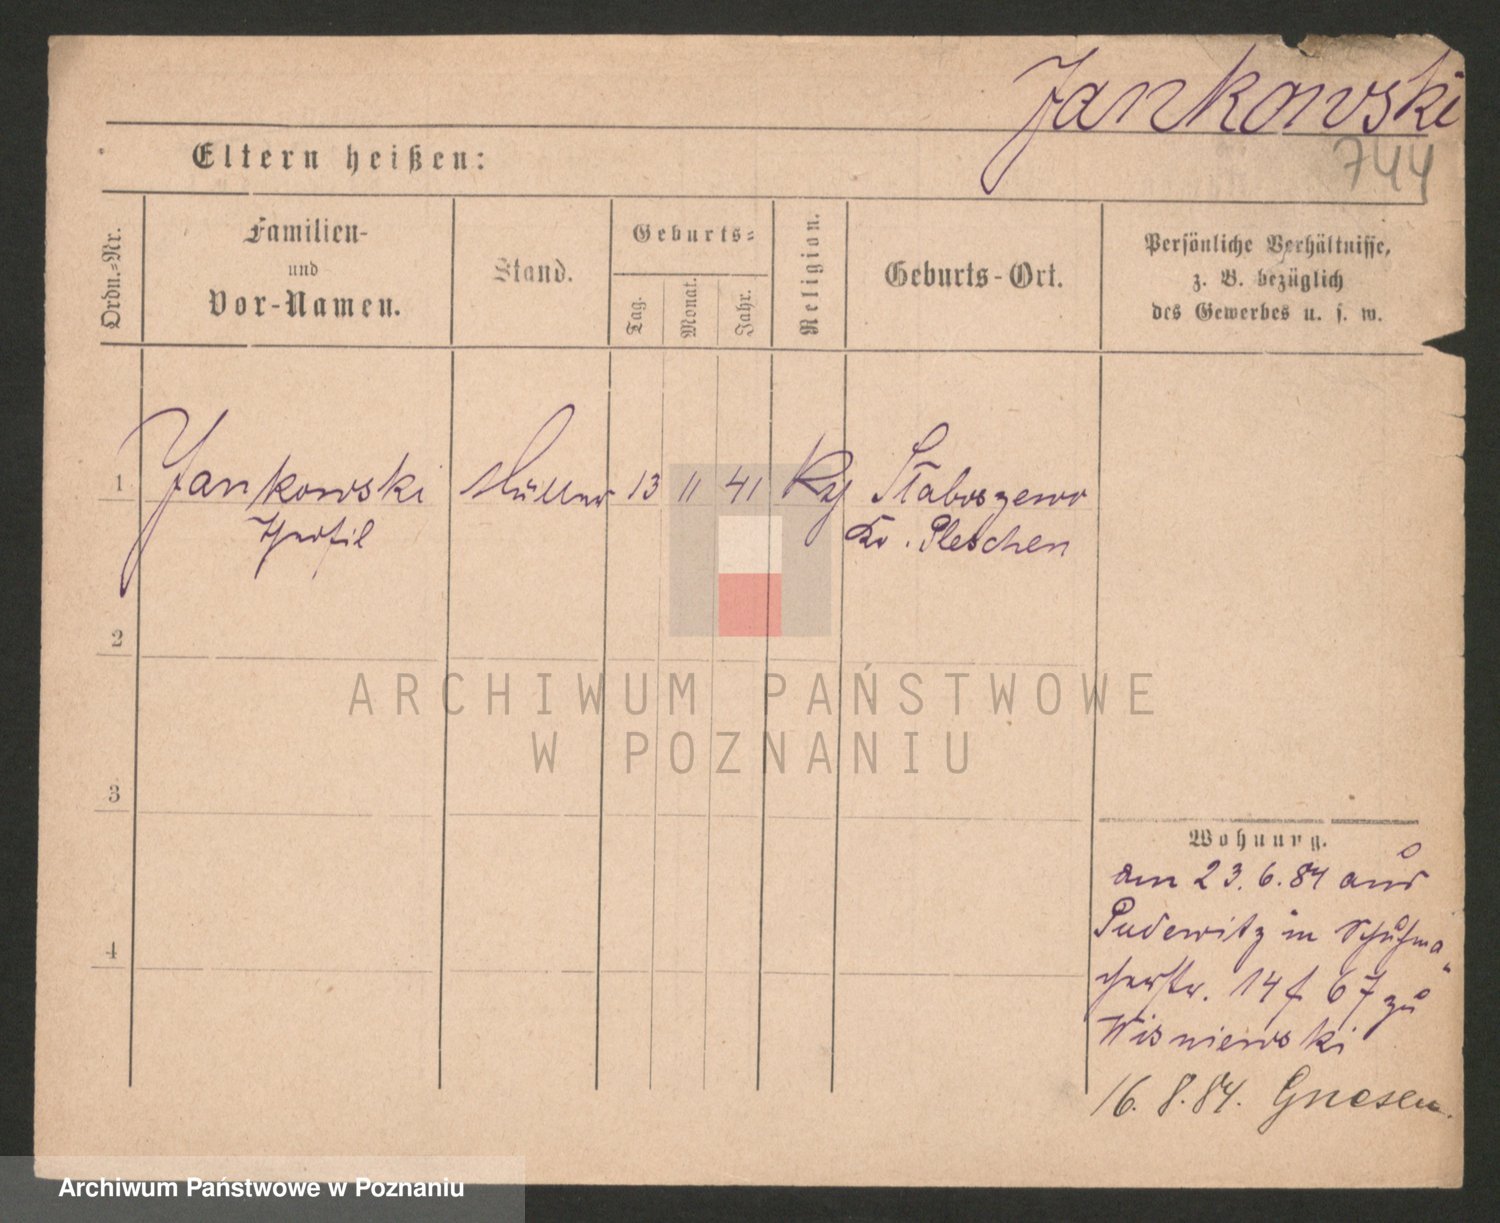 Jankowski
744
Eltern heißen:
Ordn.-Nr.
Familien-
und
Vor-Namen.
Stand.
Geburts-
Tag.
Monat.
Jahr.
Religion.
Geburts-Ort.
Persönliche Verhältnisse,
z. B. bezüglich
des Gewerbes u. s. w.
1 Jankowski Müller 13 11 41 Staboszewo
Kr. Pleschen
2
ARCHIWUM PAŃSTWOWE
W POZNANIU
3
Wohnung.
am 23.6.84 aus
Pudewitz in Schuhma
cherstr. 14 f 67 zu
Wisniewski
4
16.8.84. Gnesen.
Archiwum Państwowe w Poznaniu